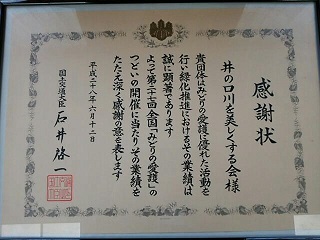 感謝状
井の口川を美しくする会様
貴団体はみどりの愛護に優れた活動を
行い緑化推進におけるその業績は
誠に顕著であります
よって第二十七回全国「みどりの愛護」の
つどいの開催に当たりその業績を
たたえ深く感謝の意を表します
平成二十八年六月十二日
国土交通大臣 石井啓一